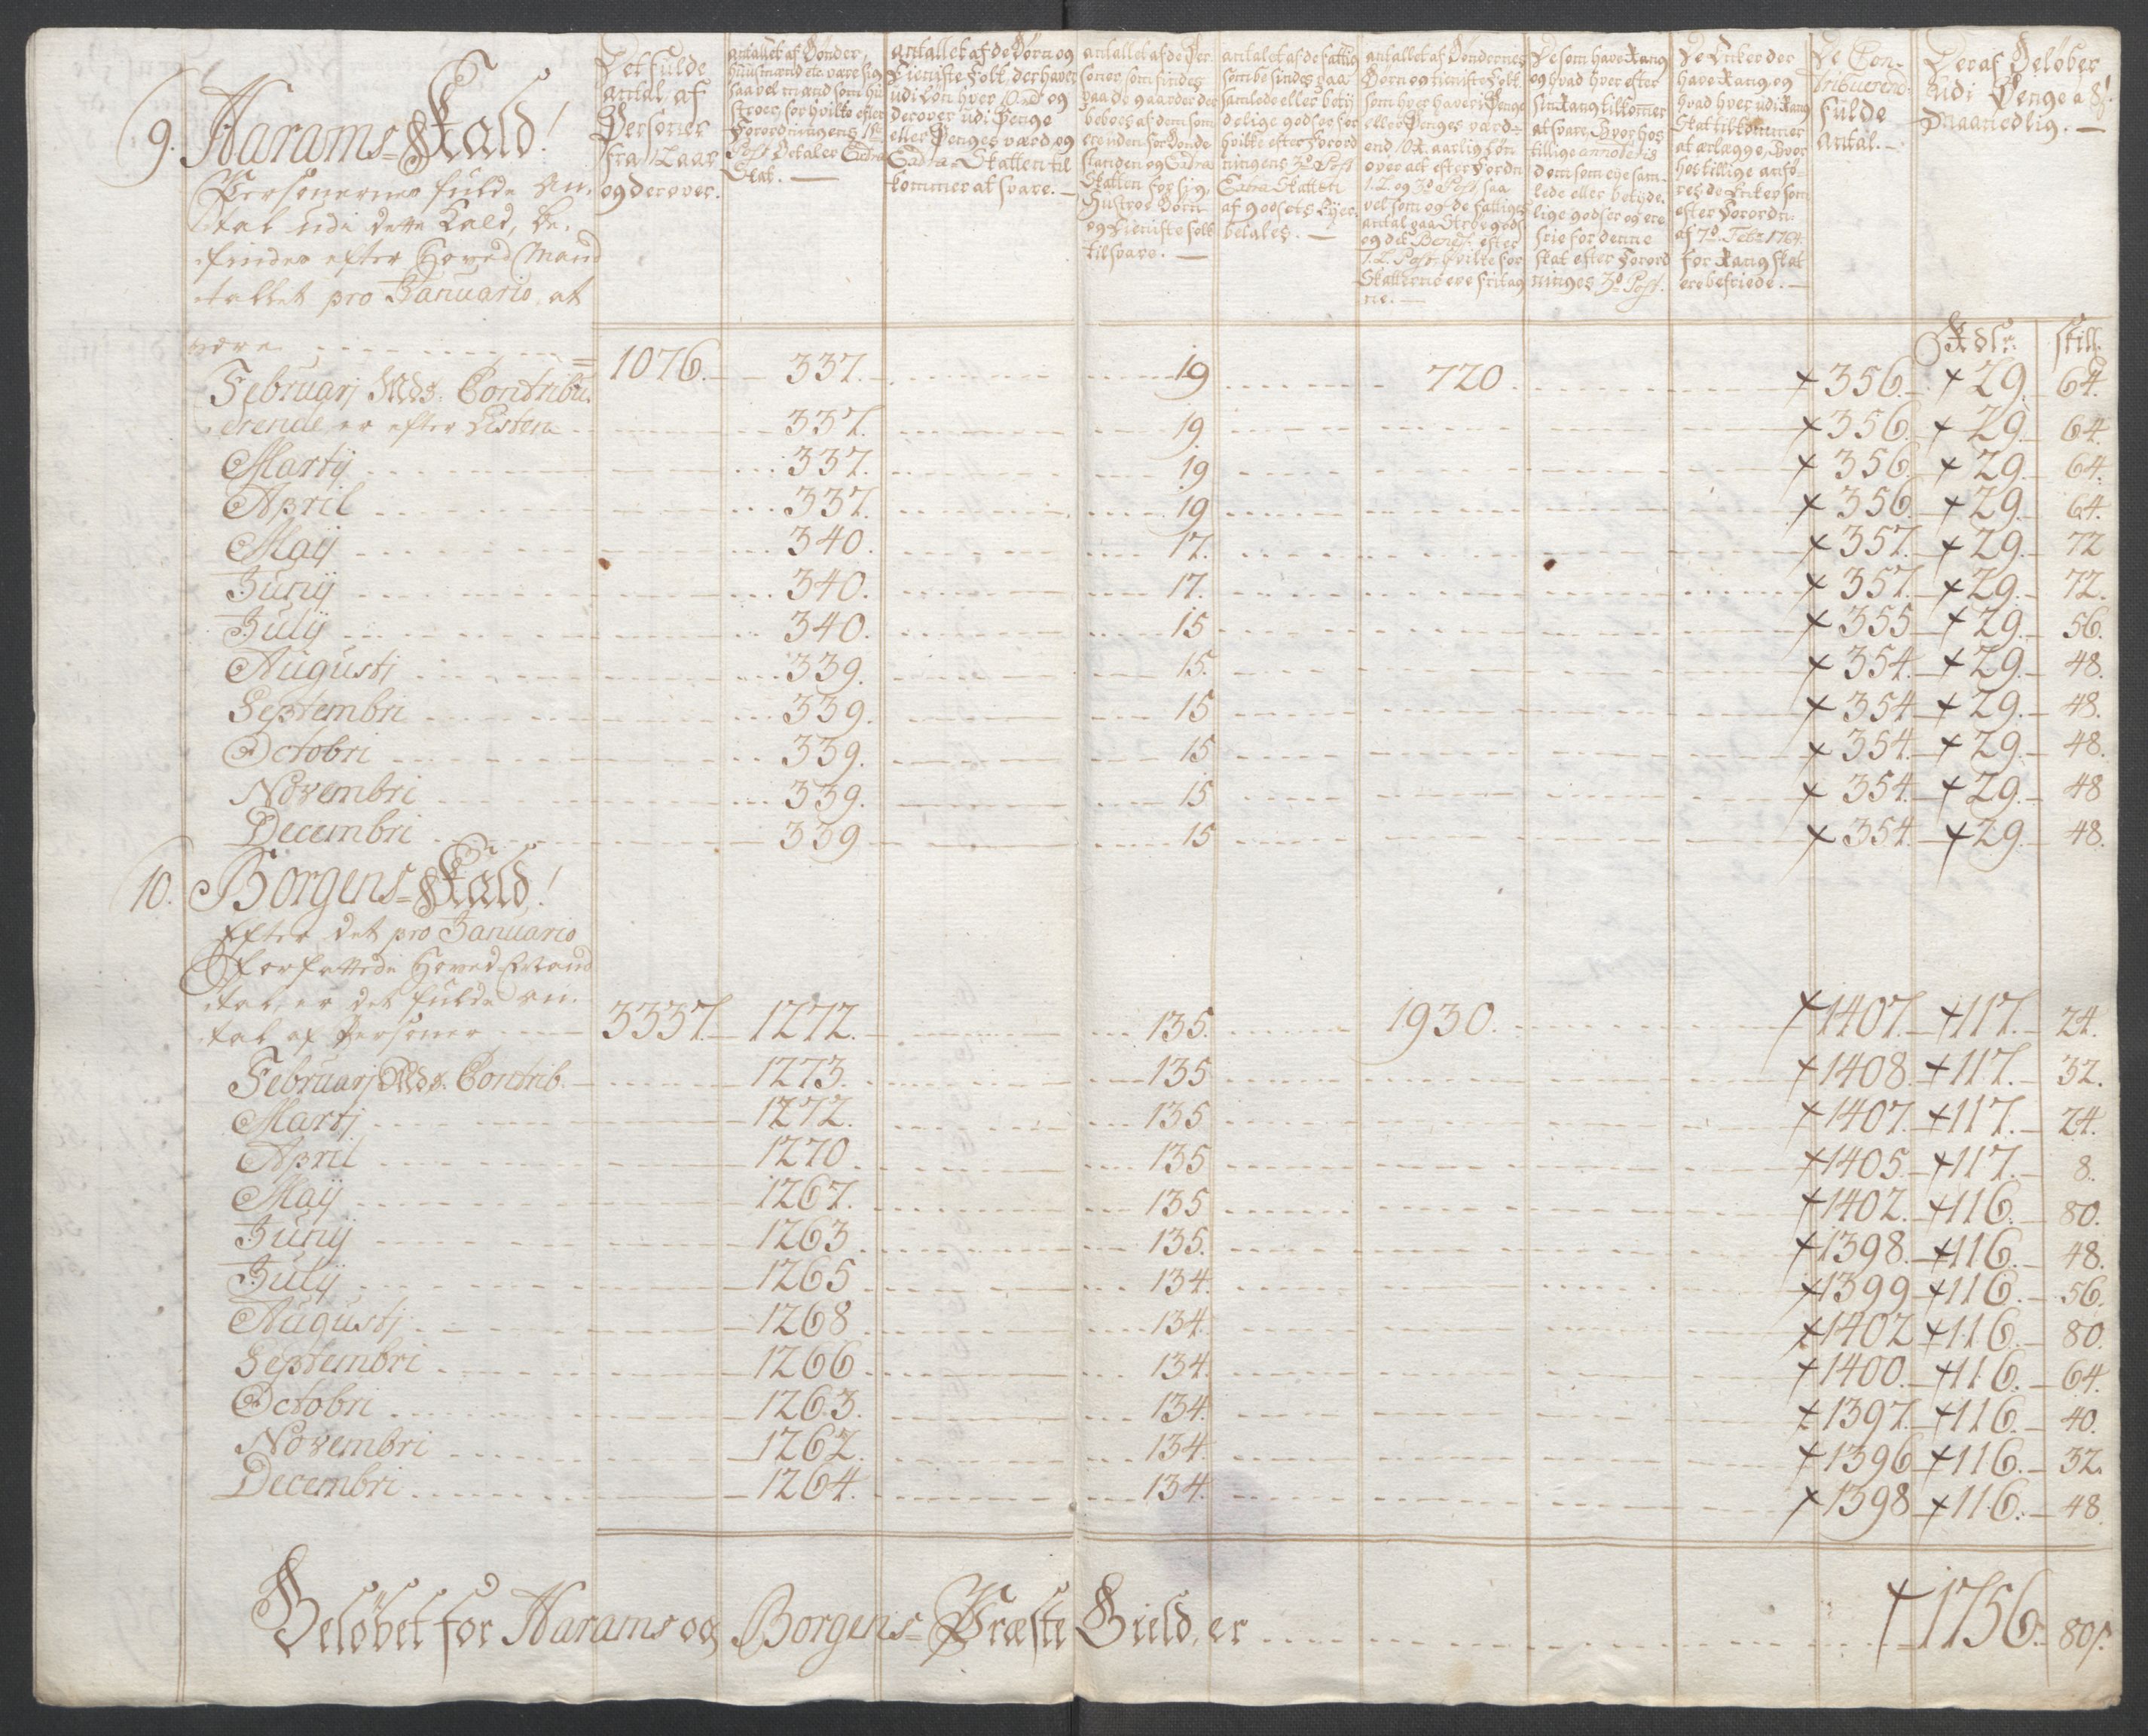 9. Harams-Kald!
Personernes fulde An-
tal udi dette Kald, be-
findes efter Hoved Mand
tallet pro Januario, at
være
Det fulde
antal af
Personer
fra 12 aar
og derover.
antallet af Bønder,
Huusmænd etc. være sig
saavel mænd som hu-
stroer, for hvilke efter
Forordningens 1te
Post betales Extra
Skat.
antallet af de Børn og
Tieniste folk der haver
udi Løn hver 10 rd og
derover udi Penge
eller Penges værd og
Extra Skatten til
kommer at svare.
antallet af de Per
soner, som findes
paa de gaarder der
beboes af dem som
ere uden for Bonde
standen og Extra
Skatten for sig,
Hustroe Børn
og Tieniste folk
til svare.
antalet af de fattige
som befindes paa
samlede eller bety
delige godser for
hvilke efter Forord
ningens 3de Post
Extra Skatten
af godsets Eyer
betales.
antallet af Bøndernes
Børn og tieniste Folk
som hver haver i Penge
eller Penges værd
end 10 rd aarlig Løn
over alt efter Forordn
1. 2. og 3de Post saa
vel som og de fattiges
antal paa Strøe gods
og det Benef. efter
1. 2. Post hvilke for
Skatterne ere fritag
ne.
De som have Rang
og hvad hver efter
sin Rang tilkomer
at svare, Hvorhos
tillige annoteris
dem som eye sam-
lede eller betyde-
lige godser og ere
frie for denne
skat efter Forord
ninges 3de Post.
De Enker der
have Rang, og
hvad hver udi Rang
Skat tilkommer
at erlægge, Hvor
hos tillige anfø-
res de Enker som
efter Forordn.
af 7de Febr. 1764
for Rang skat
ere befriede.
De Con-
tribuerend
fulde
Antal.
Deraf Beløber
udi Penge a 8 s.
Maanedlig.
Rdlr. skill.
1076. 337. 19 720. 356. 29. 64.
Februarj Mds. Contribu-
erende er efter Listen 337. 19. 356. 29. 64.
Martij 337. 19 356. 29. 64.
April 337. 19 356. 29. 64.
Maij 340. 17. 357. 29. 72
Junij 340. 17. 357. 29. 72.
Julij 340. 15 355 29. 56.
Augustj 339. 15. 354. 29. 48.
Septembri 339. 15 354 29. 48.
Octobri 339. 15 354. 29. 48.
Novembri 339. 15 354. 29. 48
Decembri 339 15 354. 29. 48.
10. Borgens-Kald!
Efter det pro Januario
forfattede Hoved Mand
tal, er det fulde an-
tal af Personer 3337. 1272. 135. 1930. 1407. 117. 24.
Februarj Mds. Contrib. 1273. 135 1408. 117. 32.
Martj 1272. 135 1407. 117. 24.
April 1270 135 1405. 117. 8.
Maij 1267. 135 1402. 116. 80.
Junij 1263 135. 1398. 116. 48.
Julij 1265 134. 1399 116. 56.
Augustj 1268 134. 1402 116. 80.
Septembri 1266 134. 1400. 116. 64.
Octobri 1263. 134. 1397. 116. 40.
Novembri 1262. 134 1396 116. 32.
Decembri 1264. 134. 1398 116. 48.
Beløbet for Harams og Borgens-Præste Gield, er 1756. 80 s.